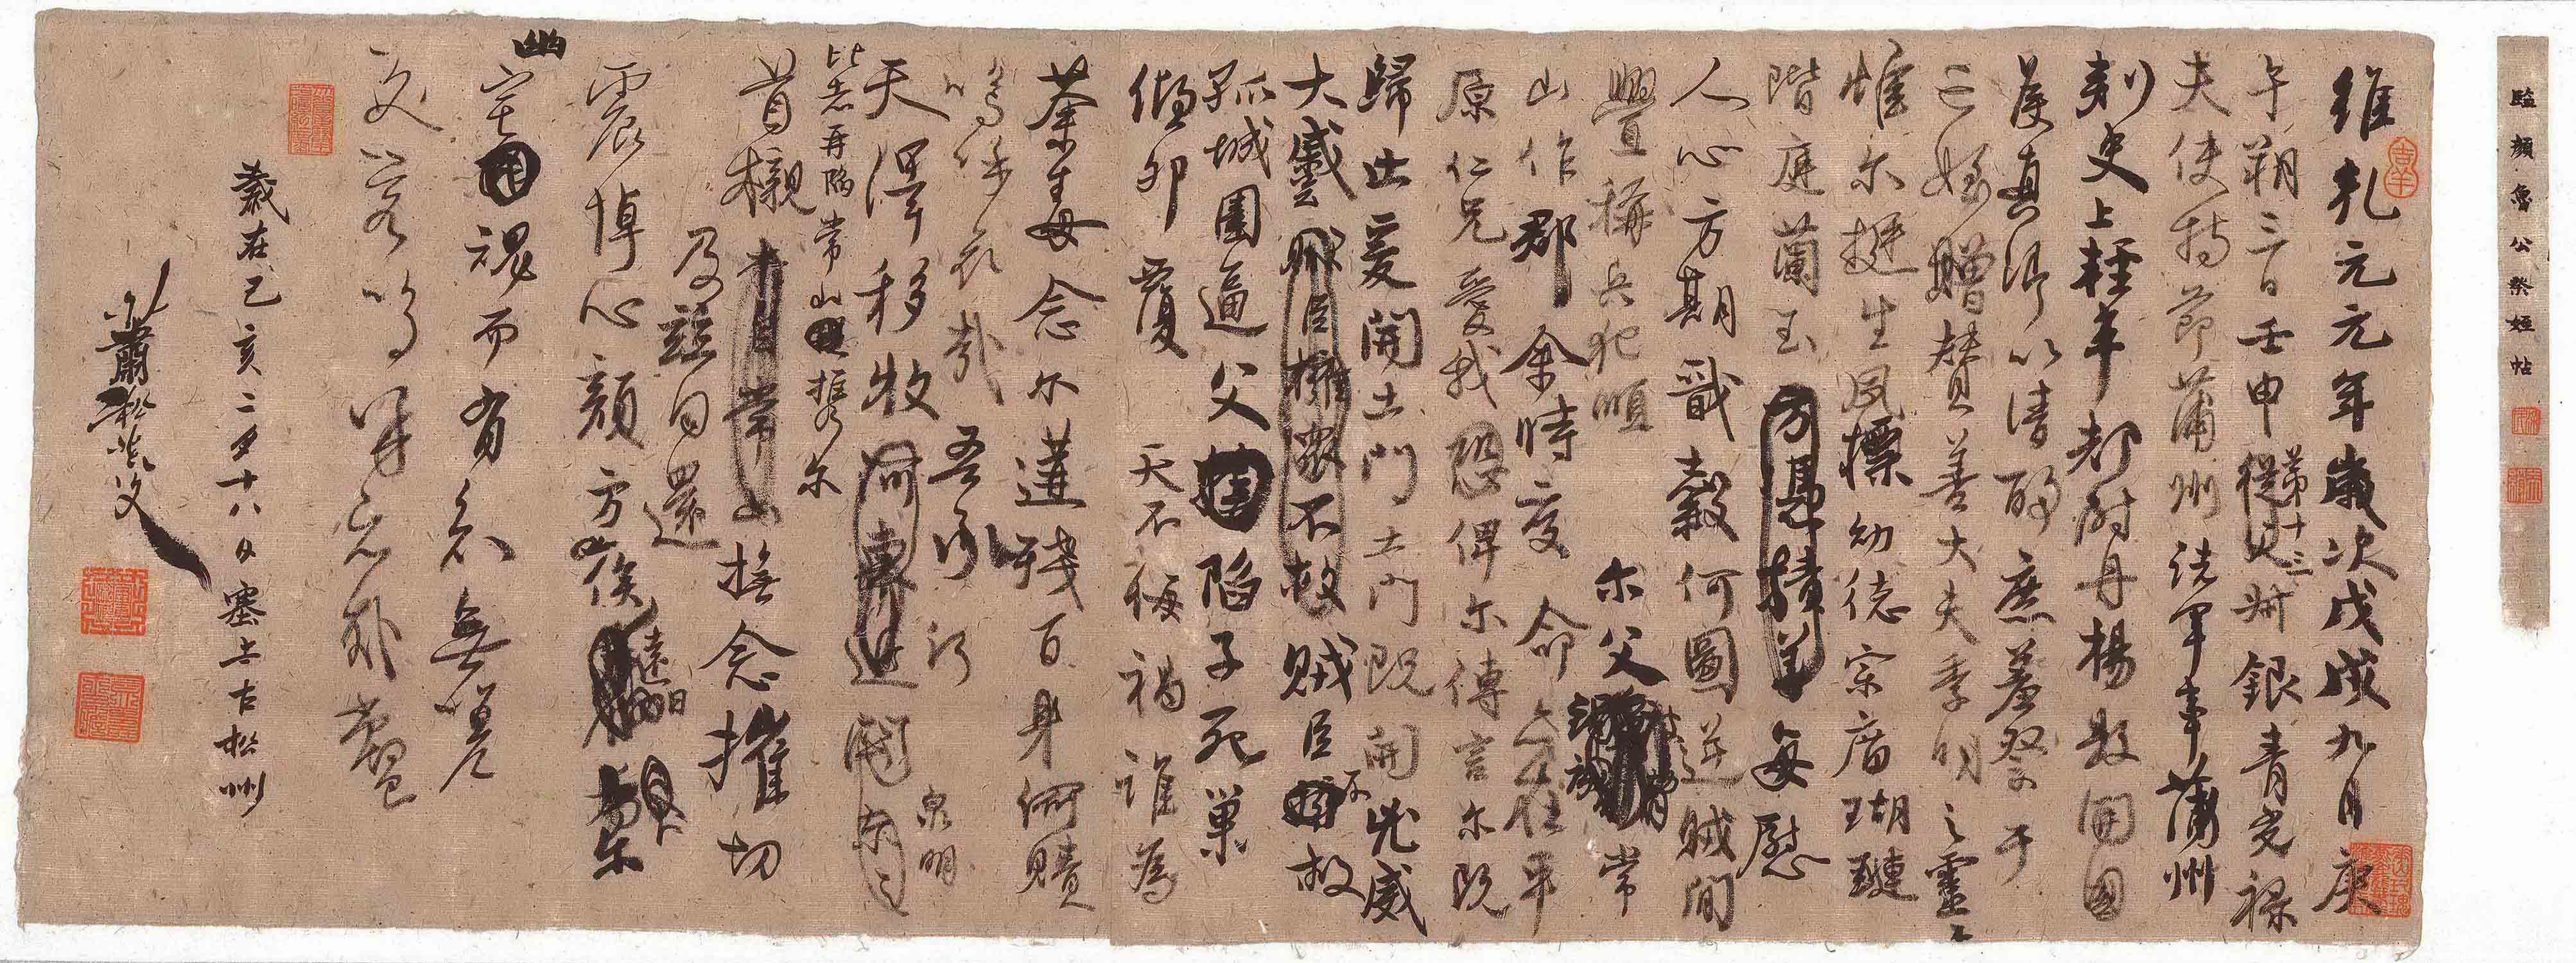 臨顏魯公祭姪帖
維乹元元年歲次戊戌九月庚
午朔三日壬申第十三從父銀青光禄
夫使持節蒲州諸軍事蒲州
刺史上輕車都尉丹楊縣開國
侯真卿以清酌庶羞祭于
亡姪贈贊善大夫季明之靈
惟尔挺生夙標幼德宗廟瑚璉
階庭蘭玉方憑積善每慰
人心方期戩穀何圖逆賊間
舋稱兵犯順尔父常
山作郡余時受命亦在平
原仁兄愛我恐俾尔傳言尔既
歸止爰開土門土門既開兇威
大蹙賊臣擁眾不救賊臣不救
孤城圍逼父陷子死巢
傾卵覆天不悔禍誰為
荼毒念尔遘殘百身何贖
嗚呼哀哉吾承
天澤移牧河東近泉明
比者再陷常山攜尔
首櫬及茲同還撫念摧切
震悼心顏方俟遠日卜尔
幽宅魂而有知無嗟
久客嗚呼哀哉尚饗
歲在己亥二夕十八日塞上古松州